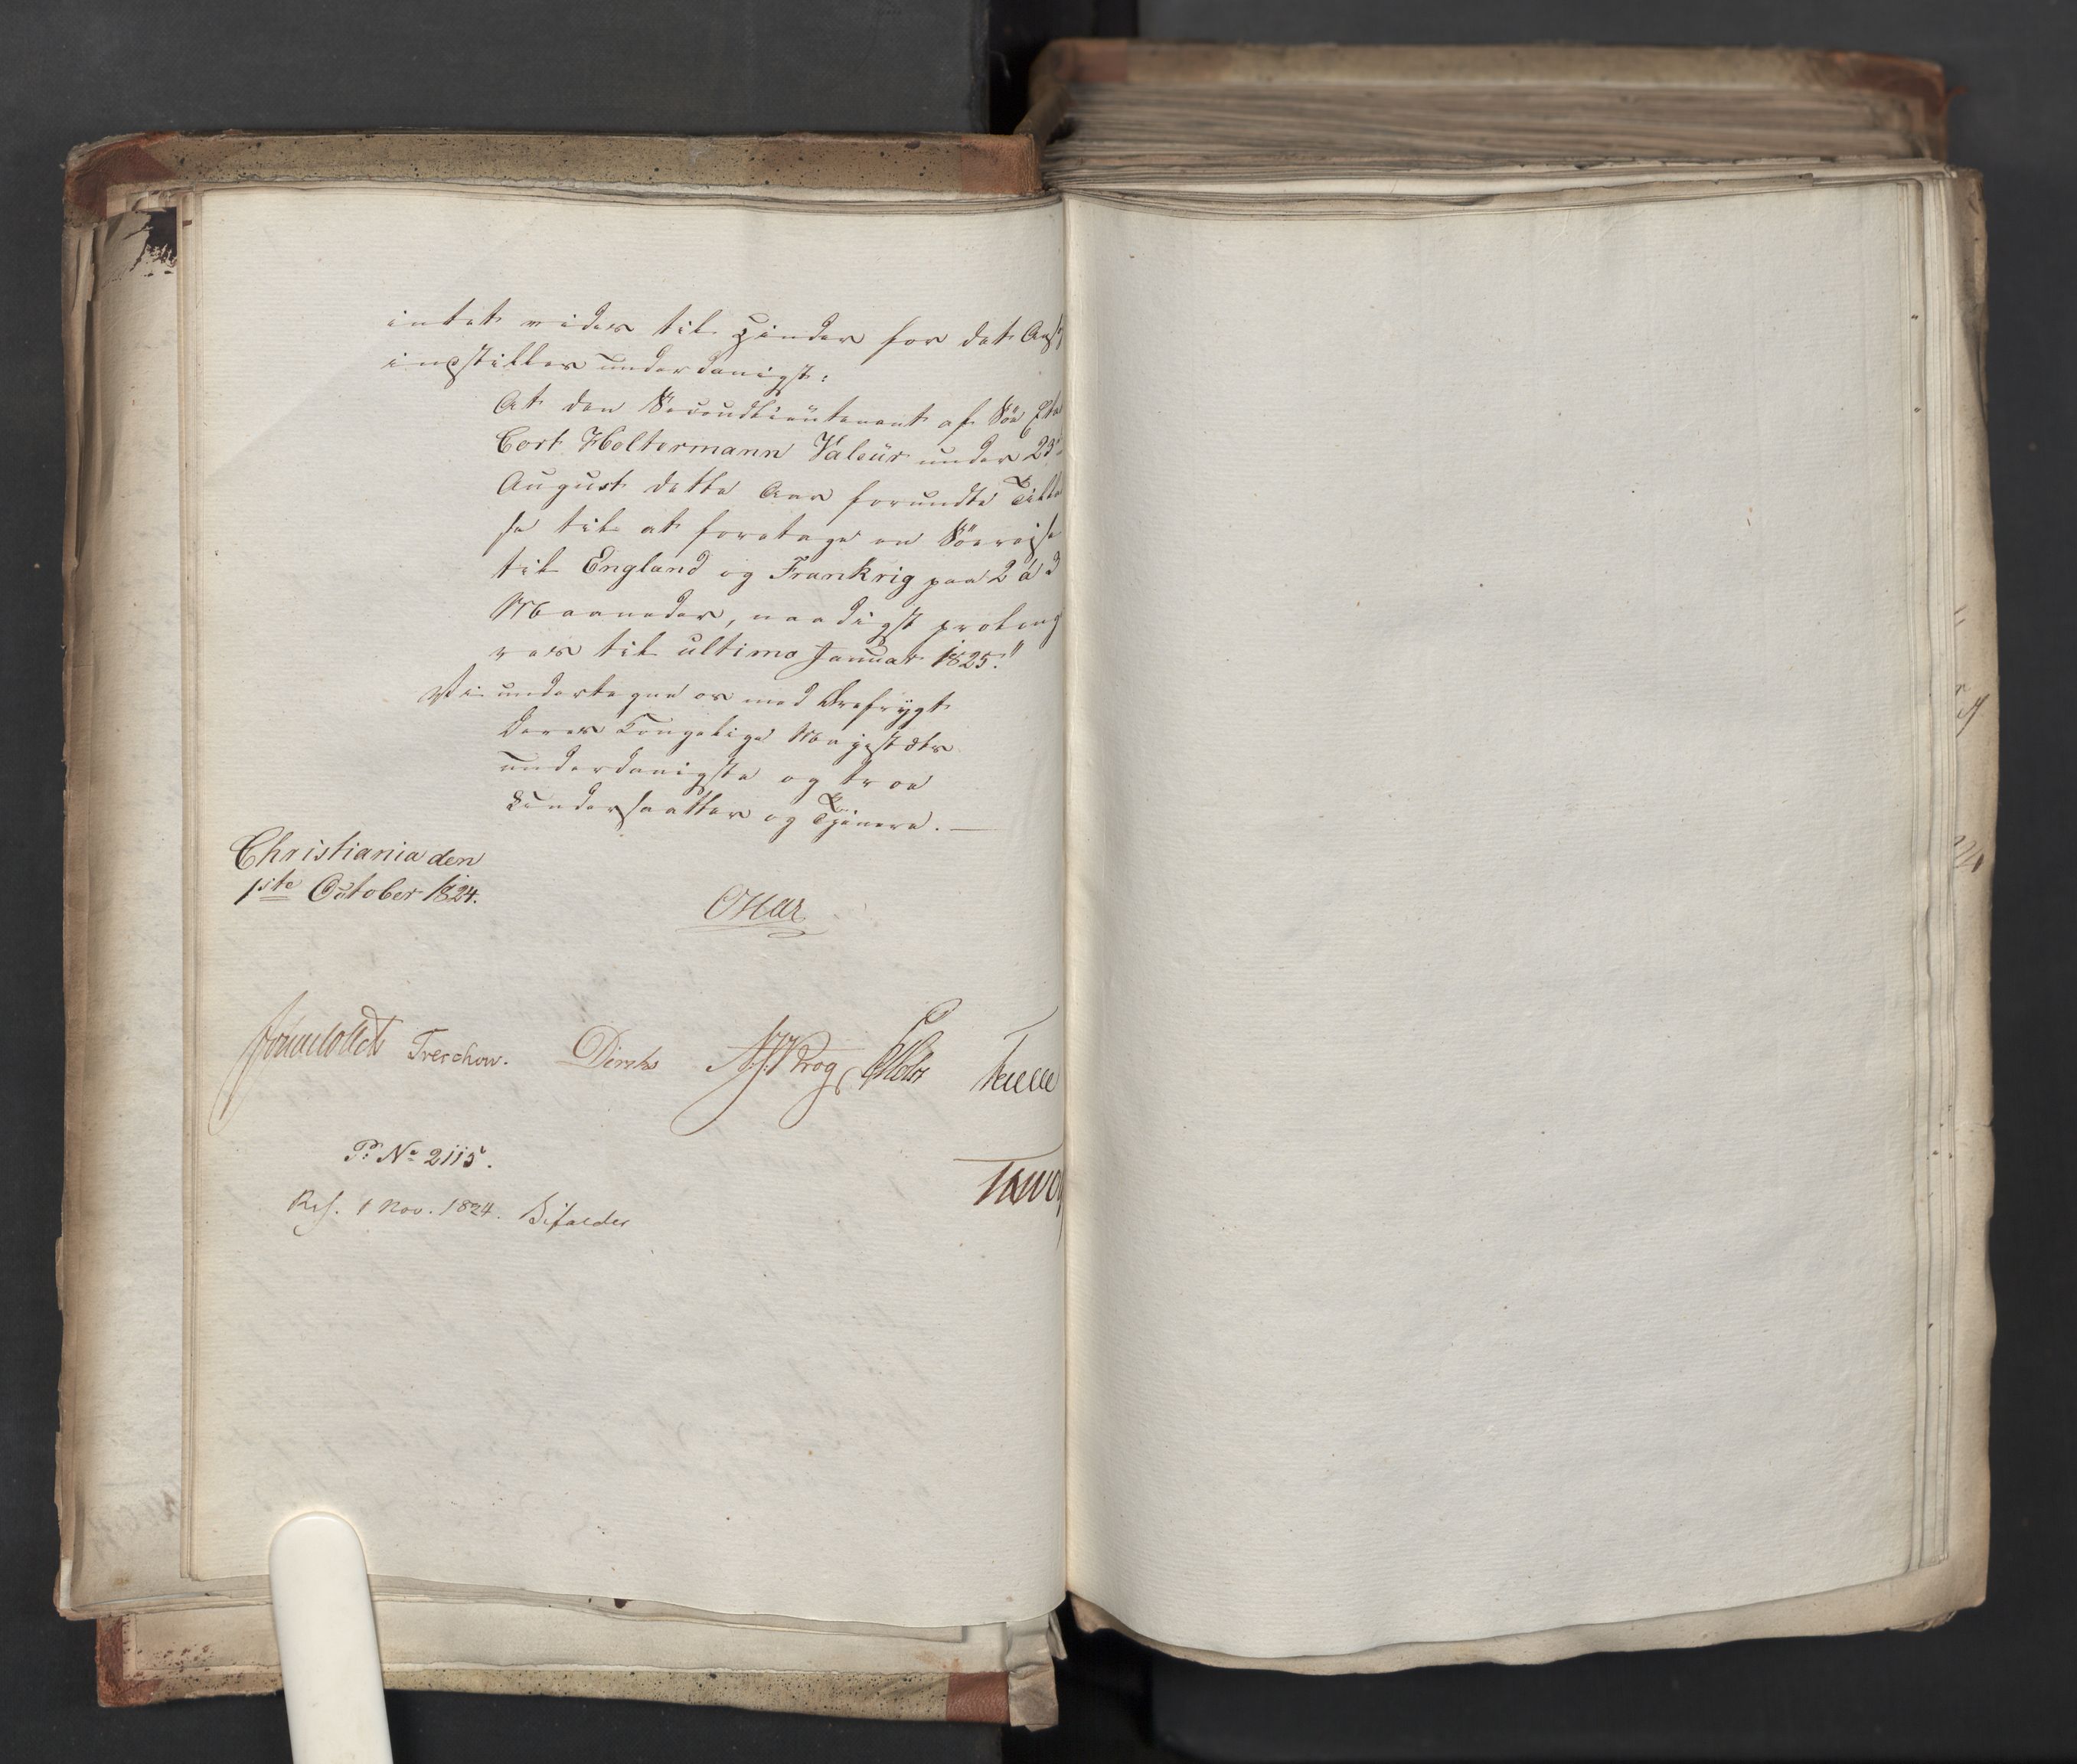 intet videre til Hinder for det Ans
indstilles underdanigst:
At den Secondlieutenant af Söe Eta
Cort Holtermann Valeür under 23
August dette Aar forundte Tilla
se til at foretage en Söereise
til England og Frankrig paa 2 á 3
Maaneder, naadigst prolong
res til ultimo Januar 1825."
Vi undertegne os med Ærefrygt
Deres Kongelige Majestæts
underdanigste og troe
Undersaatter og Tjenere. —
Christiania den
1ste October 1824.
Sommerfeldt Treschow. Diriks
P: No 2115.
Res. 1 Nov. 1824. Bifaldes